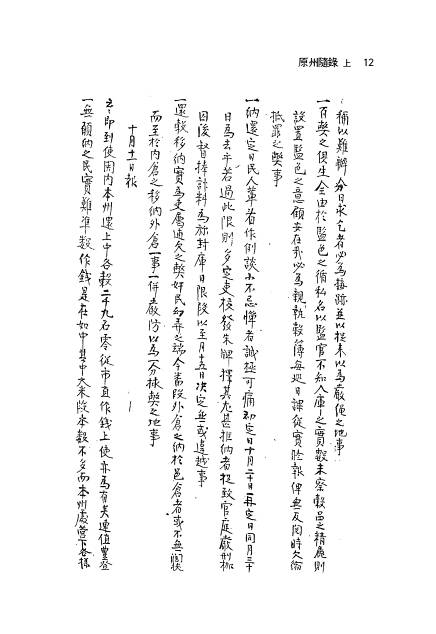 原州隨錄 上 12
稱以難辦分日永乞者必爲 並以從 以爲嚴 之地事
一百獘之俱生全由於監色之循私名以監官不知入庫之實數未察穀品之精麁則
設置監色之意顧安在哉必爲親執穀簿每巡日課從實修報俾無及 時欠縮
抵罪之獘事
一納還定日民人輩看作例談小不忌憚者誠極可痛初定日十月二十日再定日同月三十
日爲去乎若過此限則多定吏校發朱牌擇其尤甚拒納者捉致官庭嚴刑枷
囚後督捧計料爲旀封庫日限段以至月十五日決定無或違越事
一還穀移納實爲吏屬逋欠之獘奸民幻弄之端今番段外倉之納於邑倉者或不無闊狹
而至於内倉之移納外倉一事一併嚴防以爲一分捄獘之地事
十月十一日報
卽到使關内本州還上中各穀二千九石零從市直作錢上使亦爲有矣連值豊登
一無願納之民實難準數作錢是在如中其中大米段本穀不多而本州處營下各樣